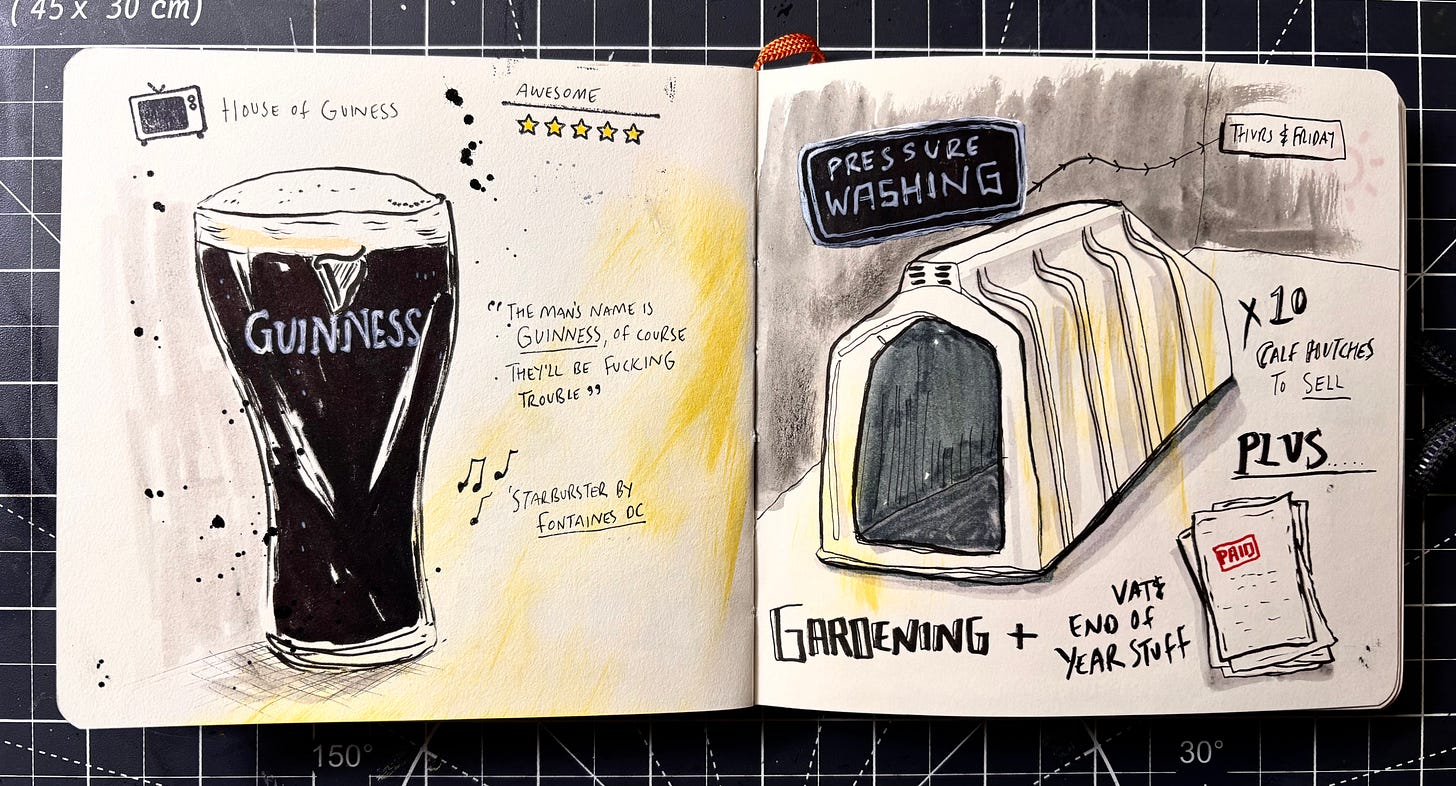 ( 45 x 30 cm)
HOUSE OF GUINESS
AWESOME
GUINNESS
“ THE MAN'S NAME IS
GUINNESS, OF COURSE
THEY'LL BE FUCKING
TROUBLE ”
'STARBURSTER BY
FONTAINES DC
PRESSURE
WASHING
THURS & FRIDAY
X 10
CALF HOUTCHES
TO SELL
PLUS.....
PAID
GARDENING +
VAT &
END OF
YEAR STUFF
150°
30°